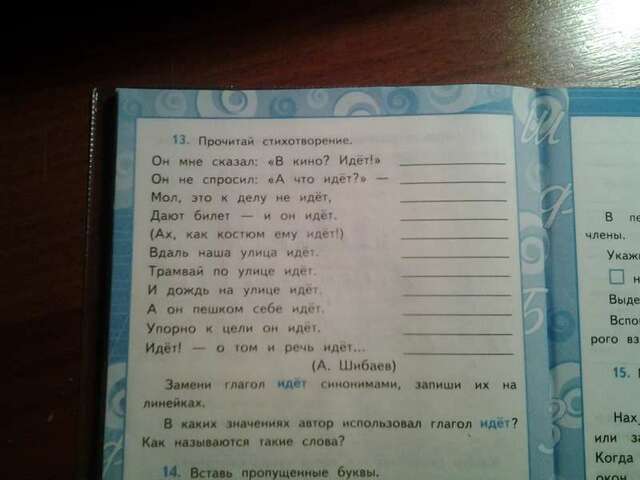 13. Прочитай стихотворение.
Он мне сказал: «В кино? Идёт!»
Он не спросил: «А что идёт?» —
Мол, это к делу не идёт,
Дают билет — и он идёт.
(Ах, как костюм ему идёт!)
Вдаль наша улица идёт.
Трамвай по улице идёт.
И дождь на улице идёт.
А он пешком себе идёт.
Упорно к цели он идёт.
Идёт! — о том и речь идёт...
(А. Шибаев)
Замени глагол идёт синонимами, запиши их на
линейках.
В каких значениях автор использовал глагол идёт?
Как называются такие слова?
14. Вставь пропущенные буквы.
В
члены.
Выде
рого вз
15.
Нах
или
Когда
окон